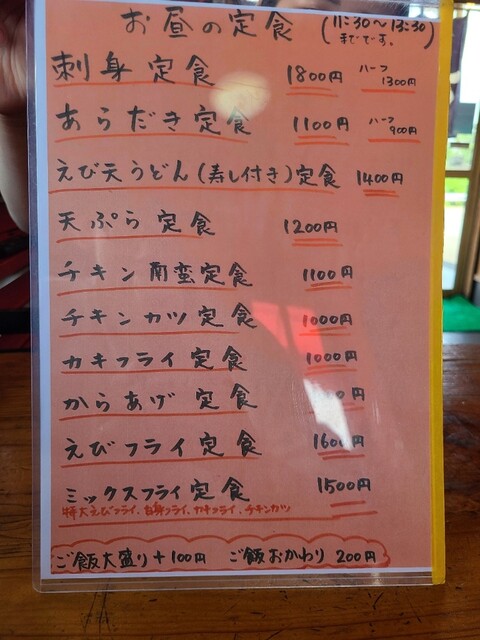 お昼の定食 (11:30～13:30
までです。)
刺身定食 1800円 ハーフ 1300円
あらだき定食 1100円 ハーフ 900円
えび天うどん(寿し付き)定食 1400円
天ぷら定食 1200円
チキン南蛮定食 1100円
チキンカツ定食 1000円
カキフライ定食 1000円
からあげ定食 0円
えびフライ定食 1600円
ミックスフライ定食 1500円
特大えびフライ、白身フライ、カキフライ、チキンカツ
ご飯大盛り+100円 ご飯おかわり 200円